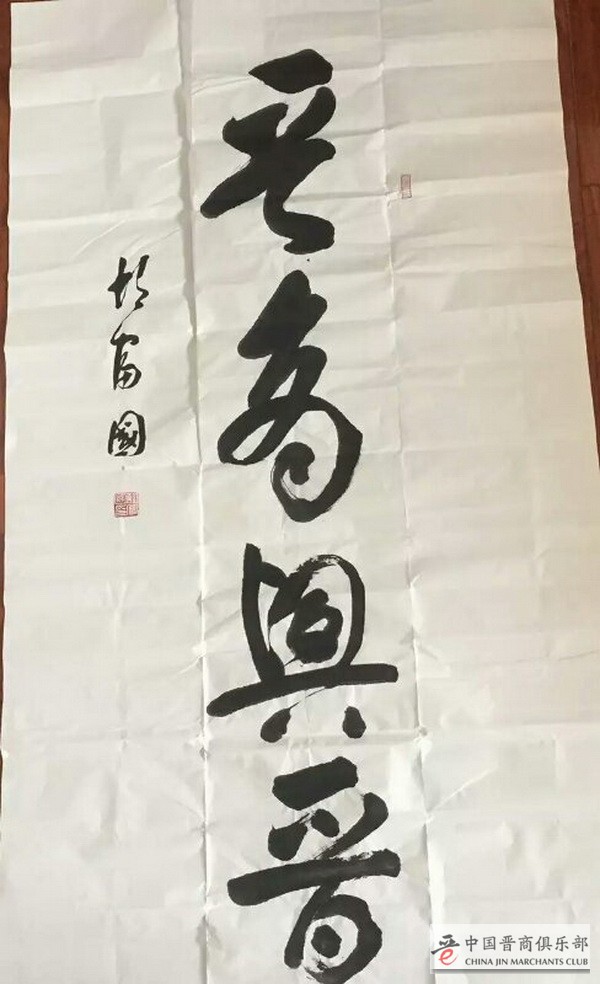 晋商興晋
胡富國
中国晋商俱乐部
CHINA JIN MARCHANTS CLUB